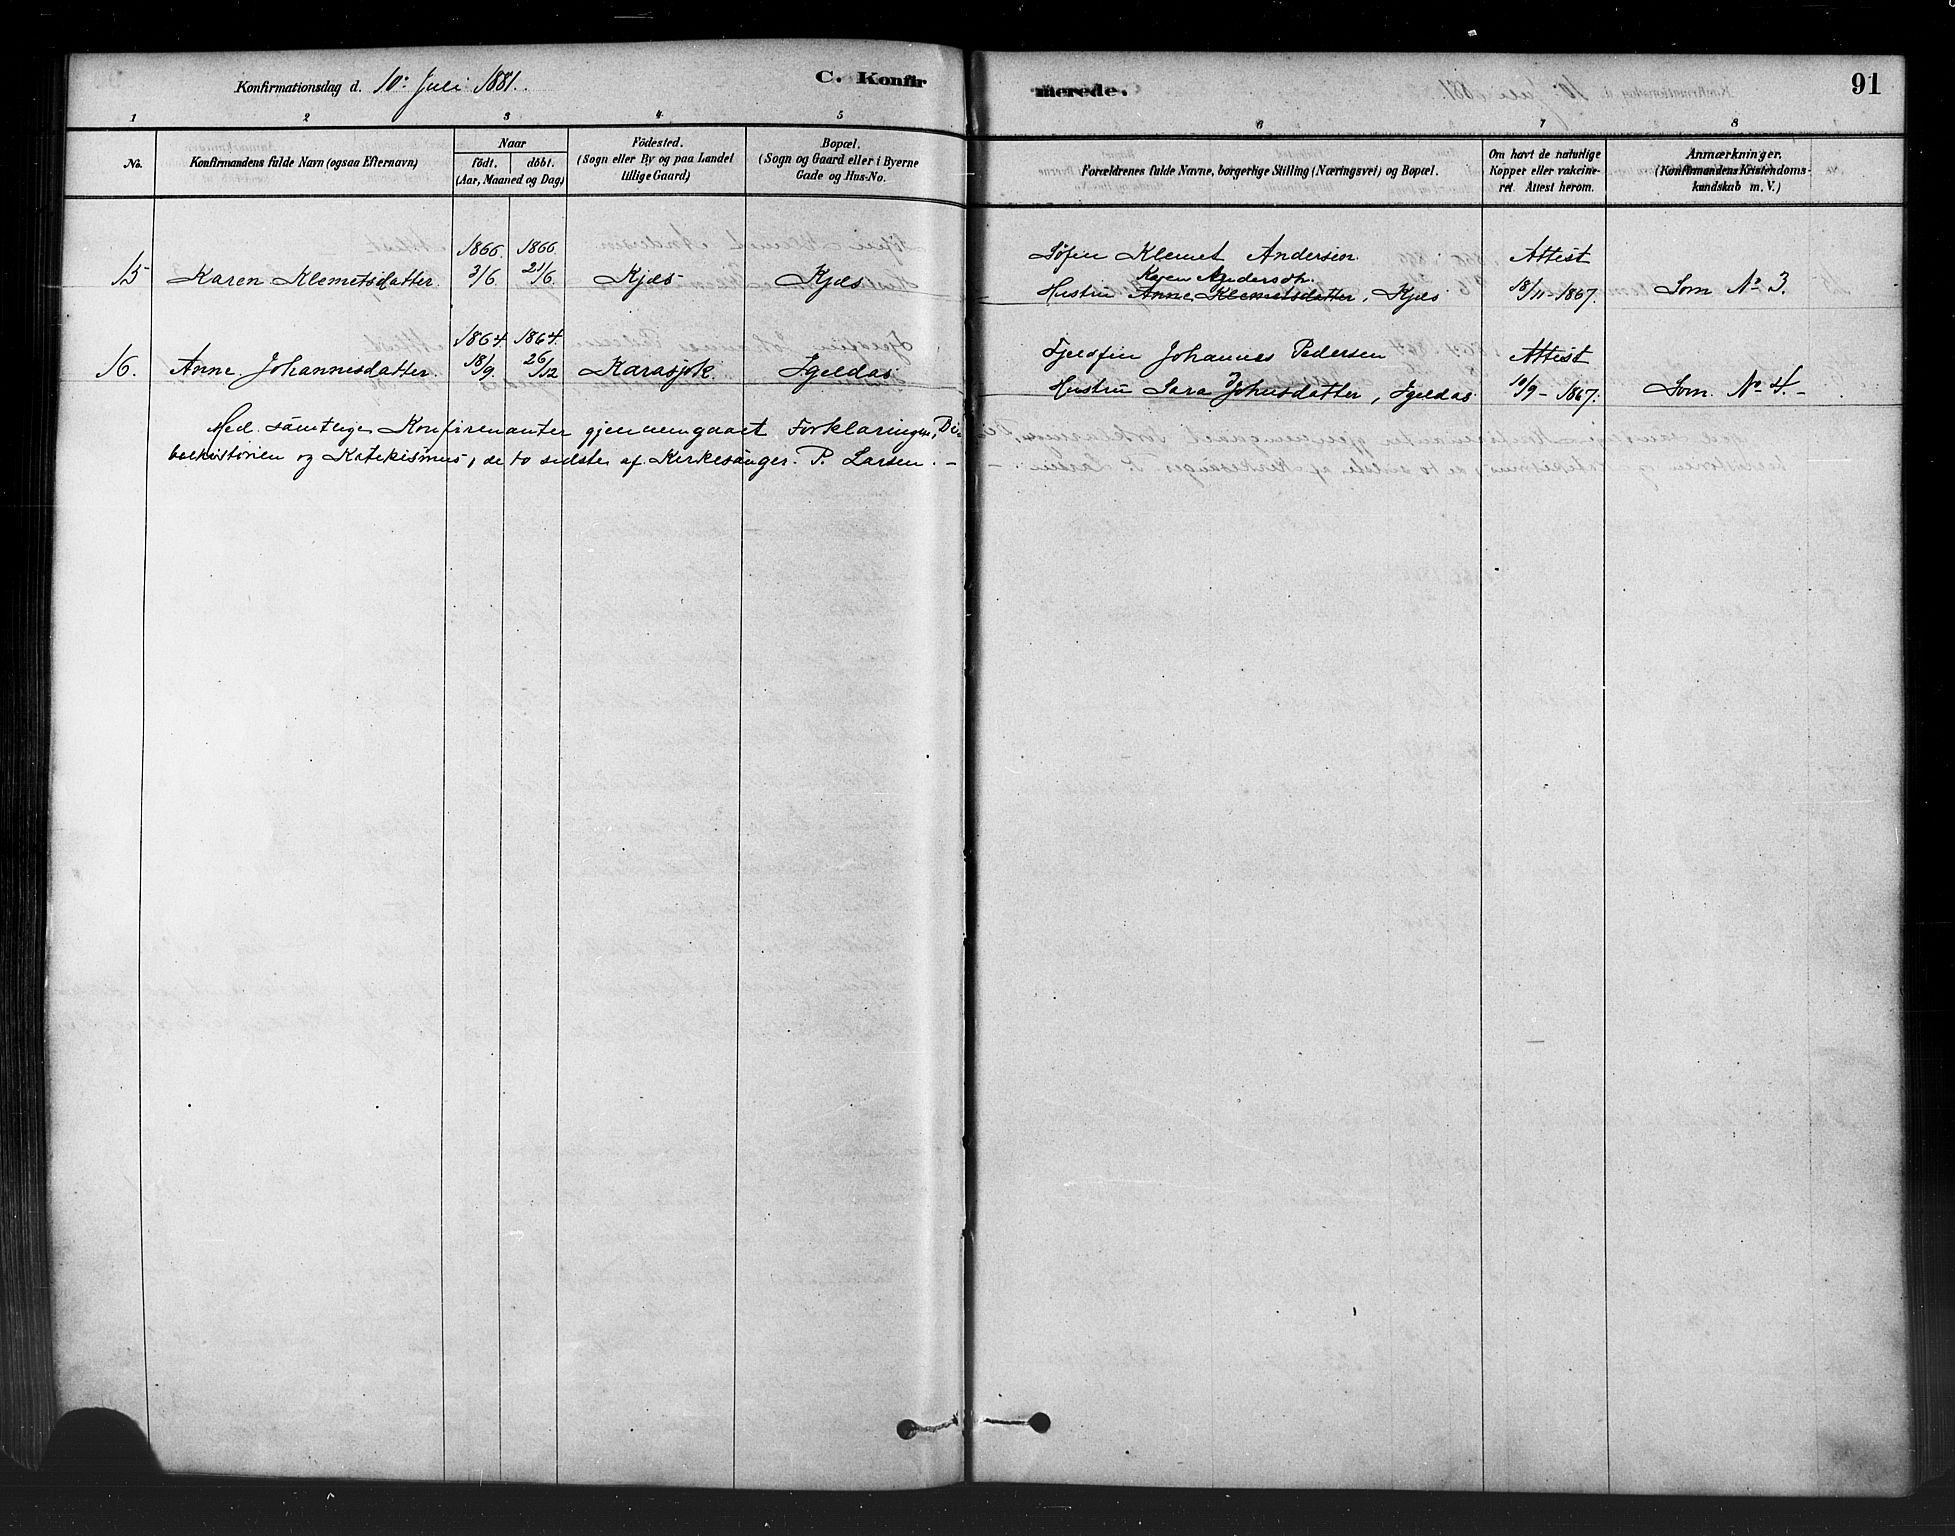 Konfirmationsdag d. 10: Juli 1881.
C. Konfir
merede.
91
1 2 3 4 5 6 7 8
No.
Konfirmandens fulde Navn (ogsaa Efternavn)
Naar
födt. döbt.
(Aar, Maaned og Dag)
Födested.
(Sogn eller By og paa Landet
tillige Gaard)
Bopæl.
(Sogn og Gaard eller i Byerne
Gade og Hus-No.
Forældrenes fulde Navne, borgerlige Stilling (Næringsvei) og Bopæl.
Om havt de naturlige
Kopper eller vakcine-
ret. Attest herom.
Anmærkninger.
(Konfirmandens Kristendoms-
kundskab m. V.)
1866. 1866. Söfin Klemet Andersen Attest
15 Karen Klemetsdatter. 3/6. 21/6 Kjæs Kjæs Karen Andersdh.
Hustru Anne Klemetsdatter, Kjæs 18/11-1867. Som No 3.
1864. 1864. Fjeldfin Johannes Pedersen Attest
16. Anne Johannesdatter. 18/9. 26/12 Karasjok Igeldas
Hustru Sara Johnsdatter, Igeldas 10/9-1867. Som No 4.-
Med samtlige Konfirmanter gjennemgaaet Forklaringen, Bi-
belhistorien og Katekismus, de to sidste af Kirkesanger P. Larsen. -